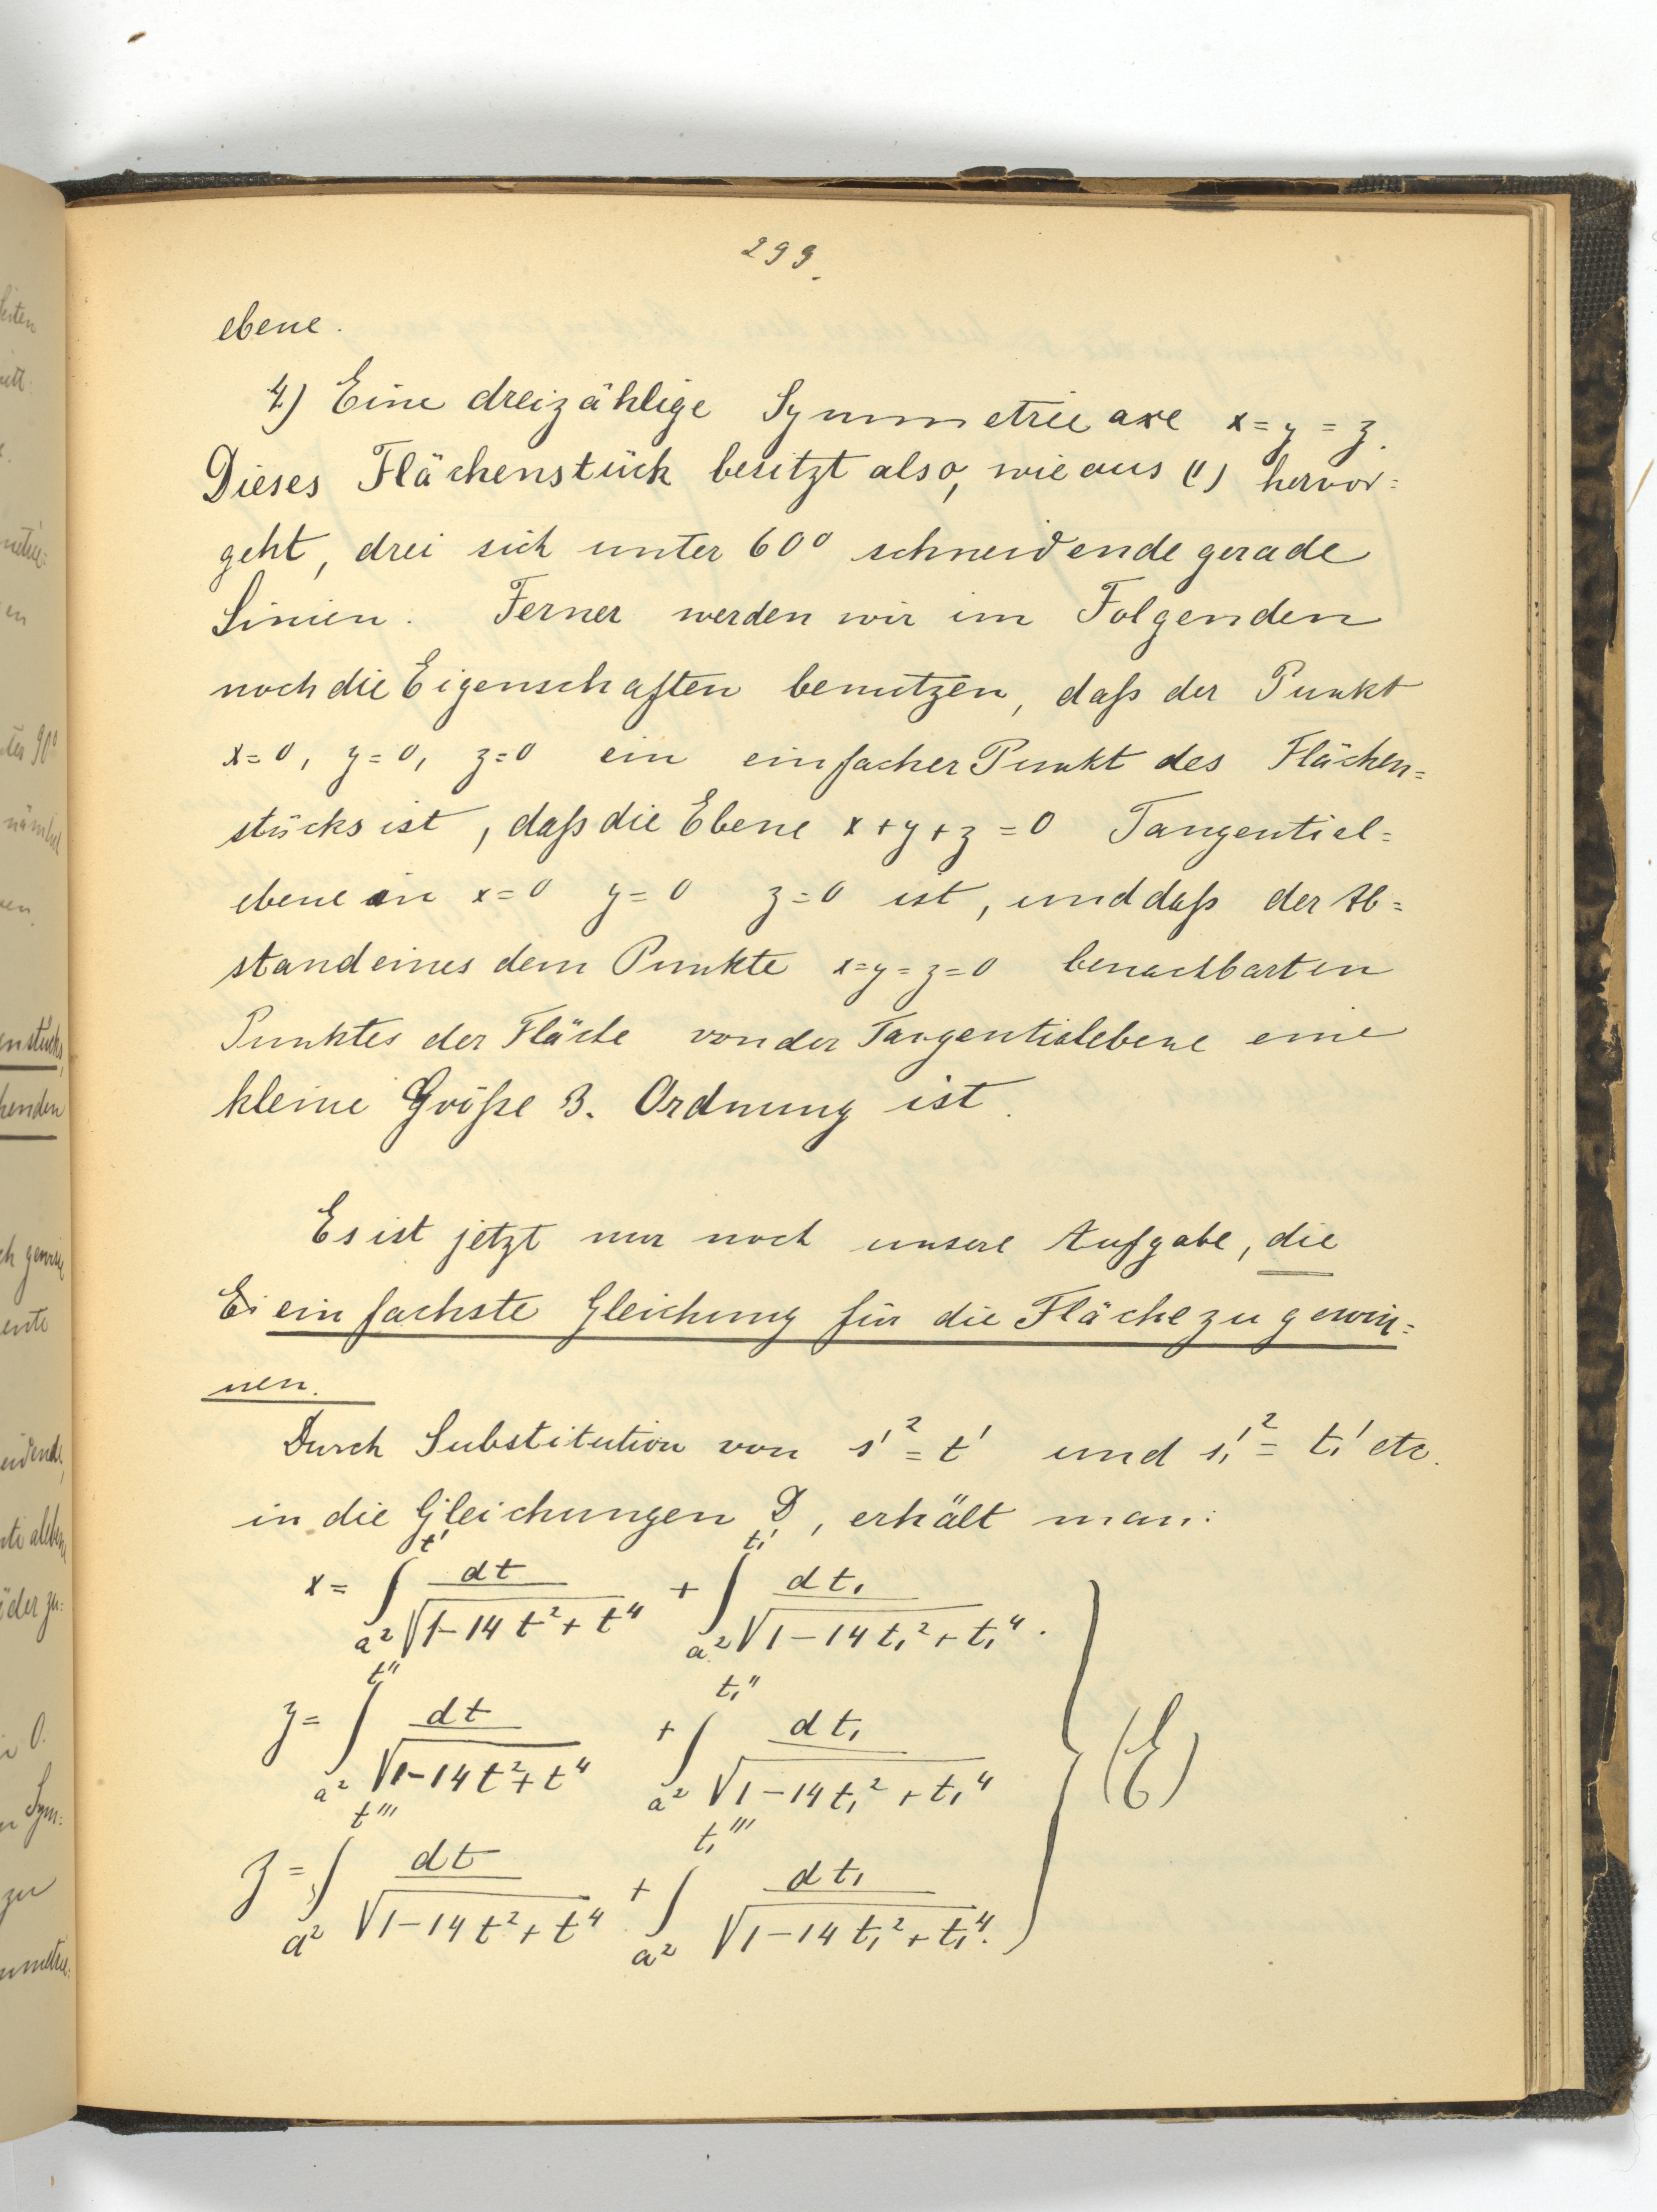 299.
ebene.
4) Eine dreizählige Symmetrieaxe x = y = z.
Dieses Flächenstück besitzt also, wie aus (1) hervor=
geht, drei sich unter 60° schneidende gerade
Linien. Ferner werden wir im Folgenden
noch die Eigenschaften benutzen, daß der Punkt
x=0, y=0, z=0 ein einfacher Punkt des Flächen=
stücks ist, daß die Ebene x+y+z=0 Tangential=
ebene in x=0 y=0 z=0 ist, und daß der Ab=
stand eines dem Punkte x=y=z=0 benachbarten
Punktes der Fläche von der Tangentialebene eine
kleine Größe 3. Ordnung ist.
Es ist jetzt nur noch unsere Aufgabe, die
Ei einfachste Gleichung für die Fläche zu gewin=
nen.
Durch Substitution von s'² = t' und s₁'² = t₁' etc.
in die Gleichungen D, erhält man:
x = ∫_{a²}^{t'} dt/√(1-14t²+t⁴) + ∫_{a²}^{t₁'} dt₁/√(1-14t₁²+t₁⁴).
y = ∫_{a²}^{t''} dt/√(1-14t²+t⁴) + ∫_{a²}^{t₁''} dt₁/√(1-14t₁²+t₁⁴) } (E)
z = ∫_{a²}^{t'''} dt/√(1-14t²+t⁴) + ∫_{a²}^{t₁'''} dt₁/√(1-14t₁²+t₁⁴).